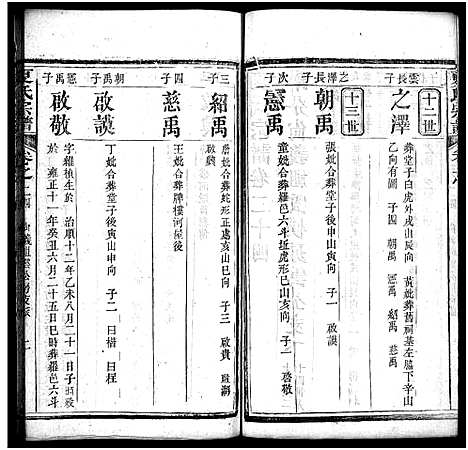 十二世
雲長子
之澤
葬堂子白虎外戌山辰向 黃妣葬舊祠基左脇下辛山
乙向 子四 朝禹 憲禹 紹禹 慈禹
十三世
之澤長子
朝禹
張妣合葬堂子後申山寅向 子一 啟謨
次子
憲禹
童妣合葬羅邑六斗坵虎形巳山亥向 子一 啓敬
三子
紹禹
詹妣合葬蛇形正處亥山巳向 子三 啟貴
啟勳
四子
慈禹
王妣合葬牌樓河屋後
朝禹子
啟謨
丁妣合葬堂子後寅山申向 子二 日楷 日桎
憲禹子
啟敬
字 植生於 治順十二年乙未八月二十一日子時 歿
於雍正十一年癸丑六月二十五日巳時葬羅邑六斗
氏宗譜
卷之二四